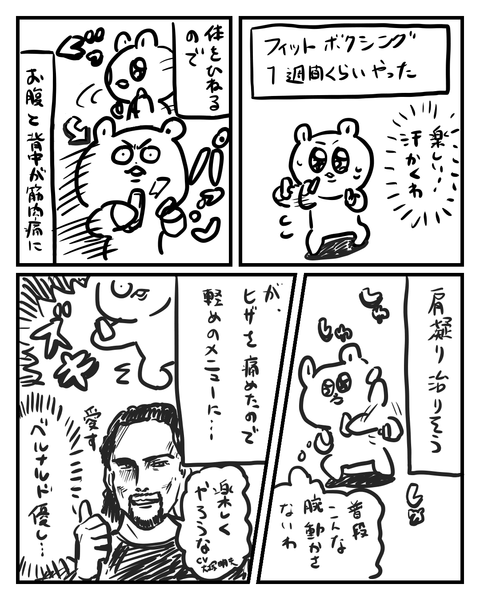 フィットボクシング
1週間くらいやった
楽しい!
汗かくわ
体をひねる
ので
バシ
お腹と背中が筋肉痛に
肩凝り治りそう
普段
こんな
腕動かさ
ないわ
が、
ヒザを痛めたので
軽めのメニューに…
楽しく
やろうな
愛す
ベルナルド優し…